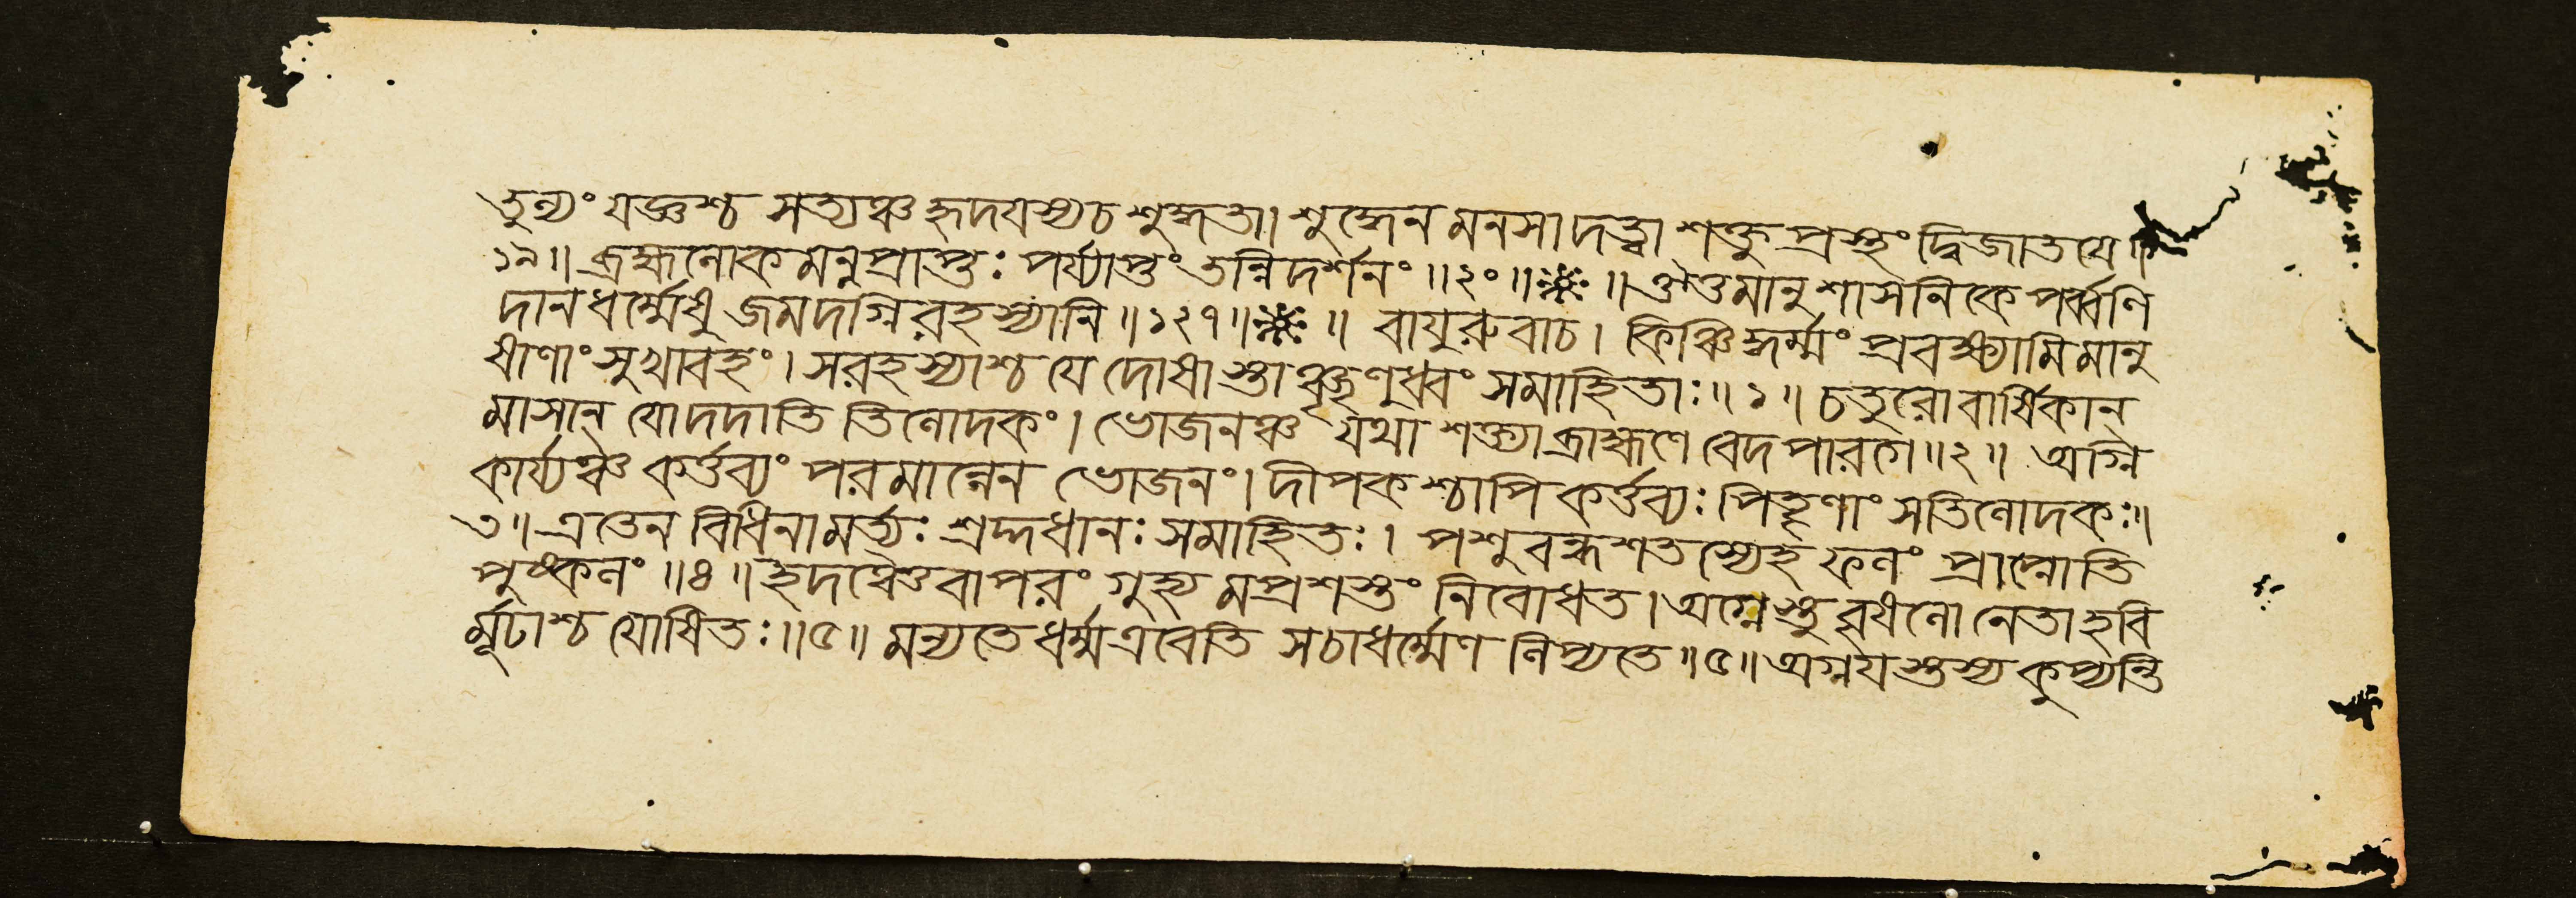 তুল্যং যজ্ঞশ্চ সত্যঞ্চ হৃদযস্যচ শুদ্ধতা। শুদ্ধেন মনসা দত্ত্বা শক্তু প্রস্থং দ্বিজাতযে॥
১৯॥ ব্রহ্মলোক মনুপ্রাপ্তঃ পর্য্যাপ্তং তন্নিদর্শনং॥২০॥❊॥ ঔতমানুশাসনিকে পর্ব্বণি
দানধর্ম্মেষু জমদগ্নিরহস্যানি॥১২৭॥❊॥ বাযুরুবাচ। কিঞ্চিদ্ধর্ম্মং প্রবক্ষ্যামি মানু
ষাণাং সুখাবহং। সরহস্যাশ্চ যে দোষাস্তাঞ্ছৃণুধ্বং সমাহিতাঃ॥১॥ চতুরোবার্ষিকান্
মাসান্ যোদদাতি তিলোদকং। ভোজনঞ্চ যথা শক্ত্যা ব্রাহ্মণে বেদপারগে॥২॥ অগ্নি
কার্য্যঞ্চ কর্ত্তব্যং পরমান্নেন ভোজনং। দীপকশ্চাপি কর্ত্তব্যঃ পিতৄণাং সতিলোদকঃ॥
৩॥ এতেন বিধিনা মর্ত্যঃ শ্রদ্দধানঃ সমাহিতঃ। পশুবন্ধশতস্যেহ ফলং প্রাপ্নোতি
পুষ্কলং॥৪॥ ইদঞ্চৈবাপরং গুহ্য মপ্রশস্তং নিবোধত। অগ্নেস্তু বৃষলো নেতা হবি
র্মূঢাশ্চ যোষিতঃ॥৫॥ মন্যতে ধর্ম্ম এবেতি সচাধর্ম্মেণ লিপ্যতে॥৫॥ অগ্নযস্তস্য কুপ্যন্তি